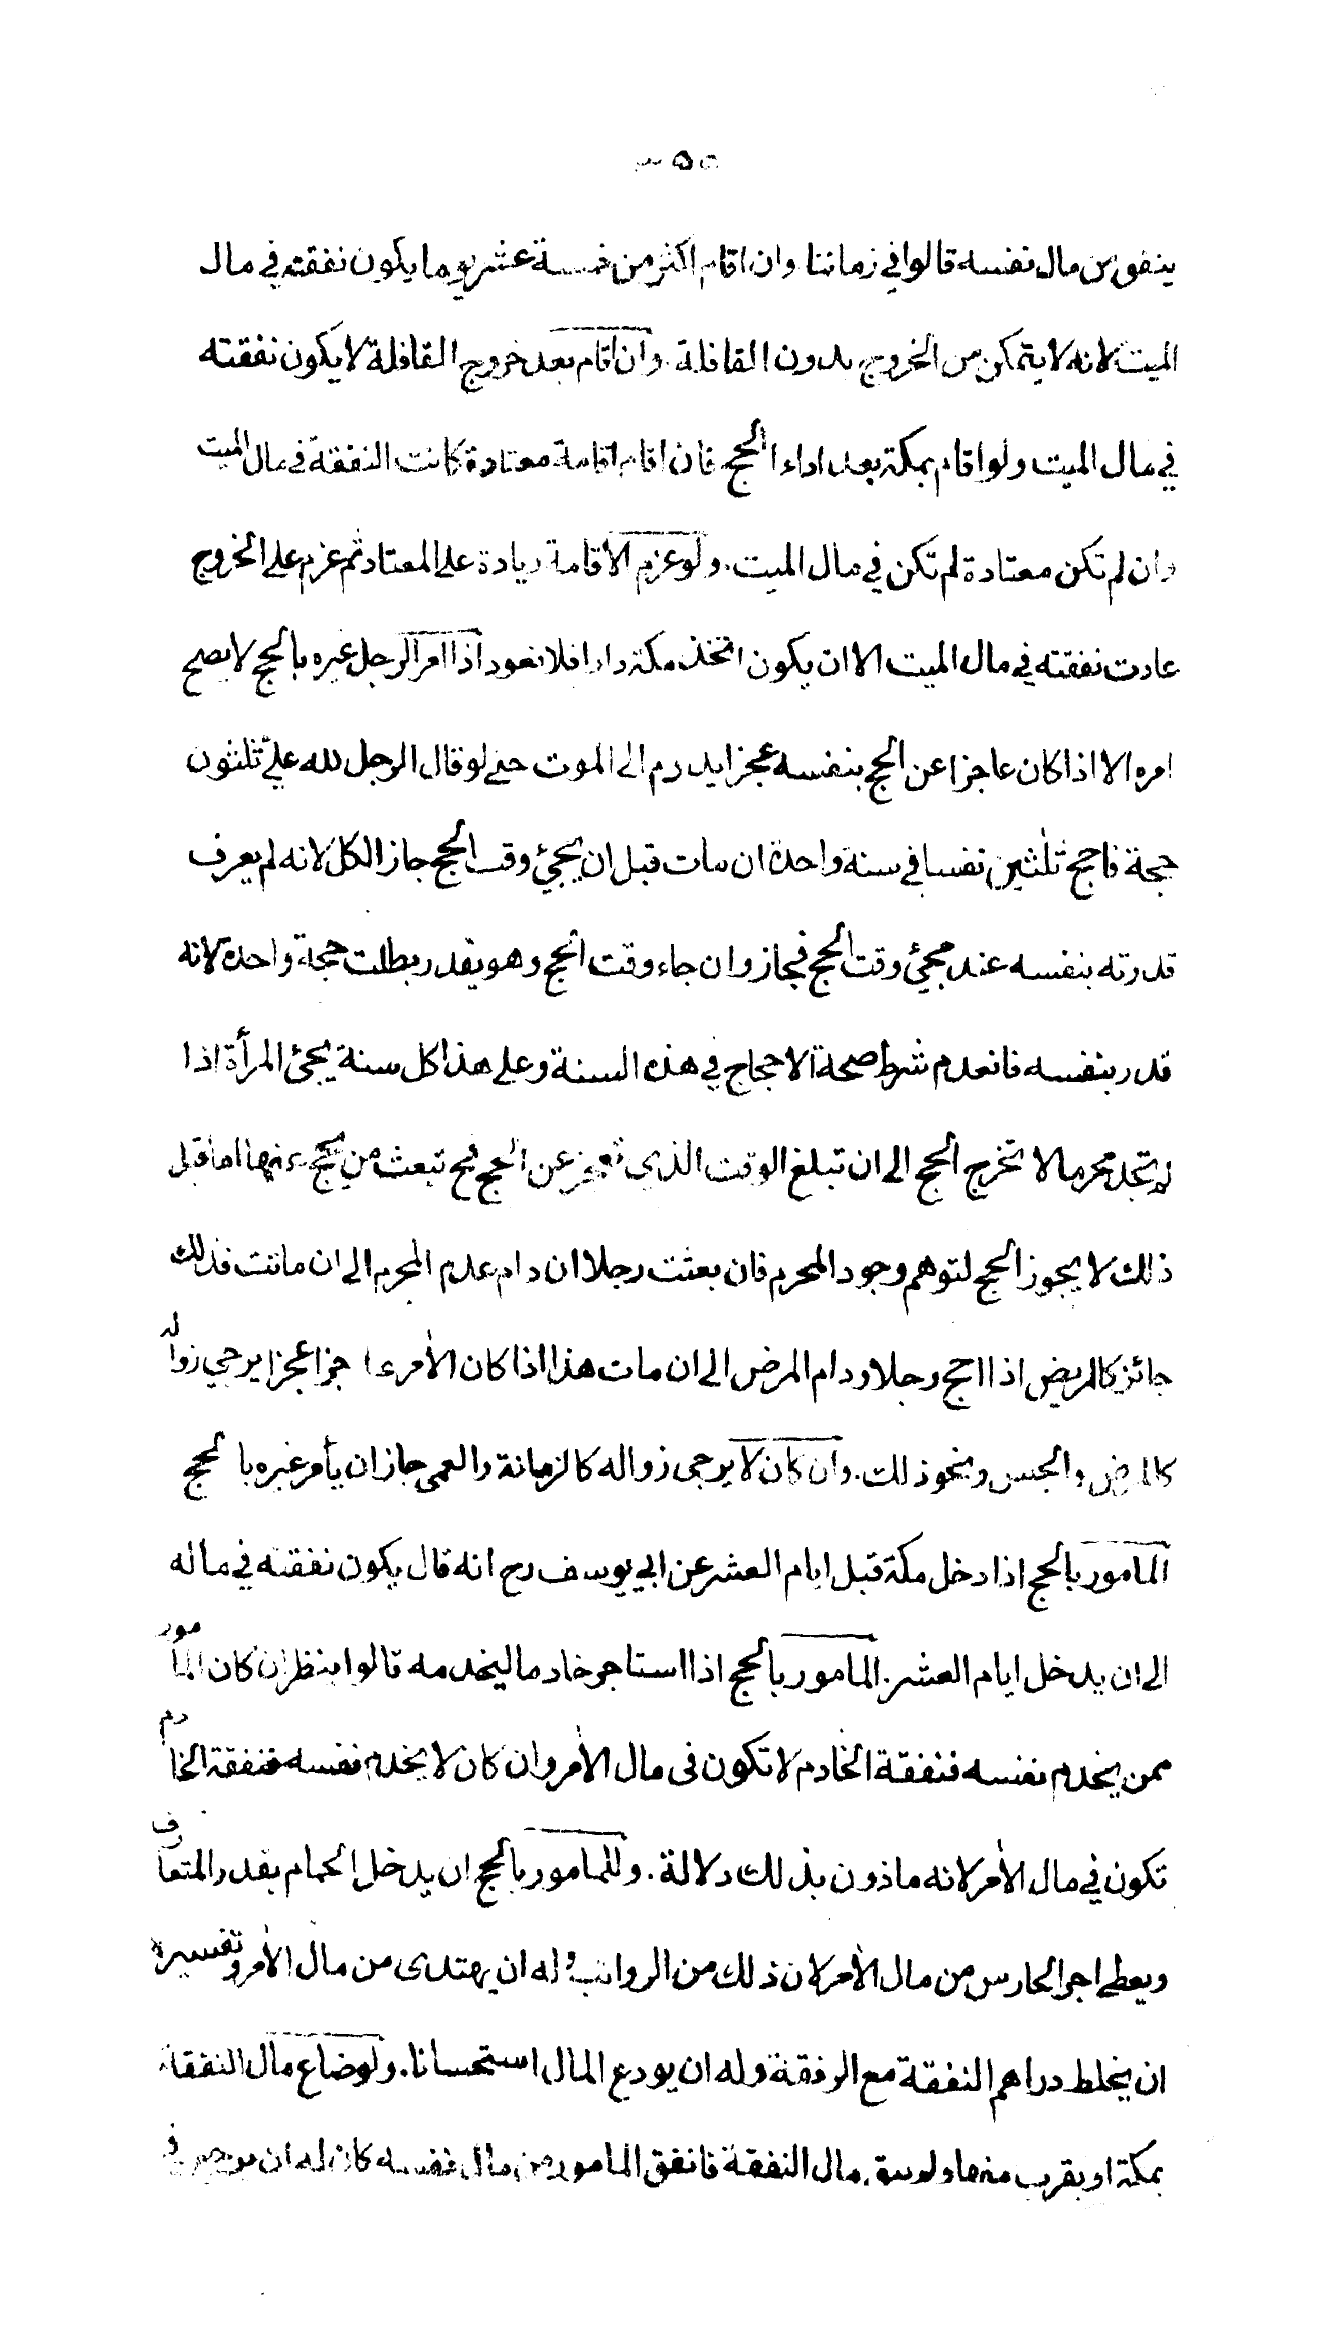 ينفق من مال نفسه قالوا في زماننا وان اقام اكثر من خمسة عشر يوما يكون نفقته في مال
الميت لانه لا يتمكن من الخروج بدون القافلة. وان اقام بعد خروج القافلة لا يكون نفقته
في مال الميت ولو اقام بمكة بعد اداء الحج فان اقام اقامة معتادة كانت النفقة في مال الميت
وان لم تكن معتادة لم تكن في مال الميت. ولو عزم الاقامة زيادة على المعتاد ثم عزم على الخروج
عادت نفقته في مال الميت الا ان يكون اتخذ مكة دارا فلا تعود اذا امر الرجل غيره بالحج لا يصح
امره الا اذا كان عاجزا عن الحج بنفسه عجزا يدوم الى الموت حتى لو قال الرجل لله عليّ ثلثون
حجة فاحج ثلثين نفسا في سنة واحدة ان مات قبل ان يجئ وقت الحج جاز الكل لانه لم يعرف
قدرته بنفسه عند مجئ وقت الحج فجاز وان جاء وقت الحج وهو يقدر بطلت حجة واحدة لانه
قدر بنفسه فانعدم شرط صحة الاحجاج في هذه السنة وعلى هذا كل سنة يجئ المرأة اذا
لم تجد محرما لا تخرج الحج الى ان تبلغ الوقت الذي تعجز عن الحج فح تبعث من يحج عنها اما قبل
ذلك لا يجوز الحج لتوهم وجود المحرم فان بعثت رجلا ان دام عدم المحرم الى ان ماتت فذلك
جائز كالمريض اذا احج رجلا ودام المرض الى ان مات هذا اذا كان الأمر عاجزا عجزا يرجى زواله
كالمرض والحبس ونحو ذلك. وان كان لا يرجى زواله كالزمانة والعمى جاز ان يأمر غيره بالحج
المامور بالحج اذا دخل مكة قبل ايام العشر عن ابي يوسف رح انه قال يكون نفقته في ماله
الى ان يدخل ايام العشر. المامور بالحج اذا استاجر خادما ليخدمه قالوا ينظر ان كان المأمور
ممن يخدم نفسه فنفقة الخادم لا تكون فى مال الأمر وان كان لا يخدم نفسه فنفقة الخادم
تكون في مال الأمر لانه ماذون بذلك دلالة. وللمامور بالحج ان يدخل الحمام بقدر المتعارف
ويعطى اجر الحارس من مال الأمر لان ذلك من الرواتب وله ان يهتدى من مال الأمر وتفسيره
ان يخلط دراهم النفقة مع الرفقة وله ان يودع المال استحسانا. ولو ضاع مال النفقة
بمكة او بقرب منها ولم يبق مال النفقة فانفق المامور من مال نفسه كان له ان يرجع في